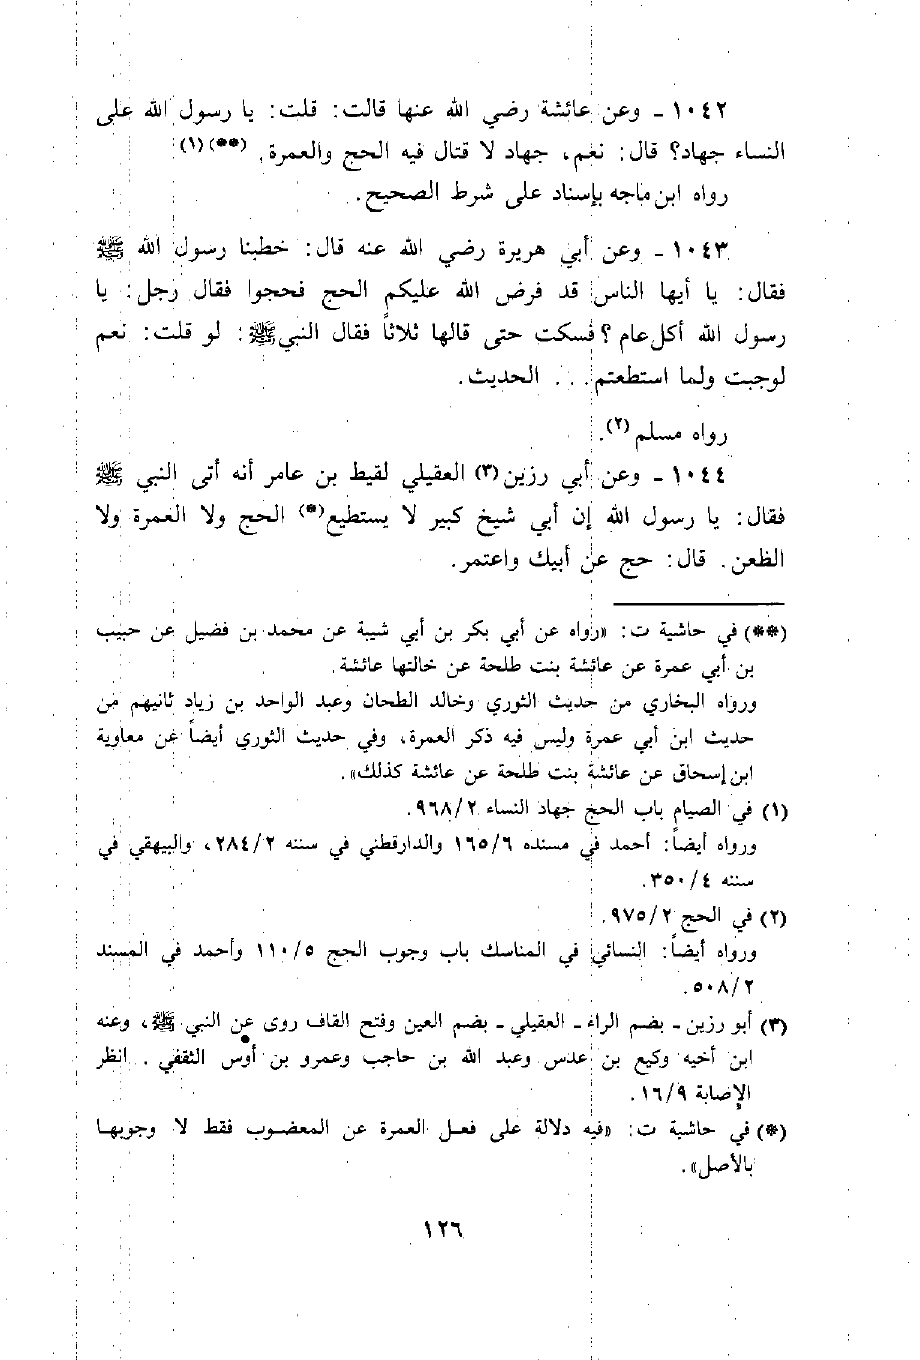 ١٠٤٢ - وعن عائشة رضي الله عنها قالت: قلت: يا رسول الله على
النساء جهاد؟ قال: نعم، جهاد لا قتال فيه الحج والعمرة. (**)(١)
رواه ابن ماجه بإسناد على شرط الصحيح.
١٠٤٣ - وعن أبي هريرة رضي الله عنه قال: خطبنا رسول الله ﷺ
فقال: يا أيها الناس قد فرض الله عليكم الحج فحجوا فقال رجل: يا
رسول الله أكل عام؟ فسكت حتى قالها ثلاثاً فقال النبي ﷺ: لو قلت: نعم
لوجبت ولما استطعتم. . . الحديث.
رواه مسلم (٢).
١٠٤٤ - وعن أبي رزين (٣) العقيلي لقيط بن عامر أنه أتى النبي ﷺ
فقال: يا رسول الله إن أبي شيخ كبير لا يستطيع(*) الحج ولا العمرة ولا
الظعن. قال: حج عن أبيك واعتمر.
(**) في حاشية ت: «رواه عن أبي بكر بن أبي شيبة عن محمد بن فضيل عن حبيب
بن أبي عمرة عن عائشة بنت طلحة عن خالتها عائشة.
ورواه البخاري من حديث الثوري وخالد الطحان وعبد الواحد بن زياد ثانيهم من
حديث ابن أبي عمرة وليس فيه ذكر العمرة، وفي حديث الثوري أيضاً عن معاوية
ابن إسحاق عن عائشة بنت طلحة عن عائشة كذلك».
(١) في الصيام باب الحج جهاد النساء ٩٦٨/٢.
ورواه أيضاً: أحمد في مسنده ١٦٥/٦ والدارقطني في سننه ٢٨٤/٢، والبيهقي في
سننه ٣٥٠/٤.
(٢) في الحج ٩٧٥/٢.
ورواه أيضاً: النسائي في المناسك باب وجوب الحج ١١٠/٥ وأحمد في المسند
٥٠٨/٢.
(٣) أبو رزين - بضم الراء - العقيلي - بضم العين وفتح القاف روى عن النبي ﷺ، وعنه
ابن أخيه وكيع بن عدس وعبد الله بن حاجب وعمرو بن أوس الثقفي. انظر
الإصابة ١٦/٩.
(*) في حاشية ت: «فيه دلالة على فعل العمرة عن المعضوب فقط لا وجوبها
بالأصل».
١٢٦